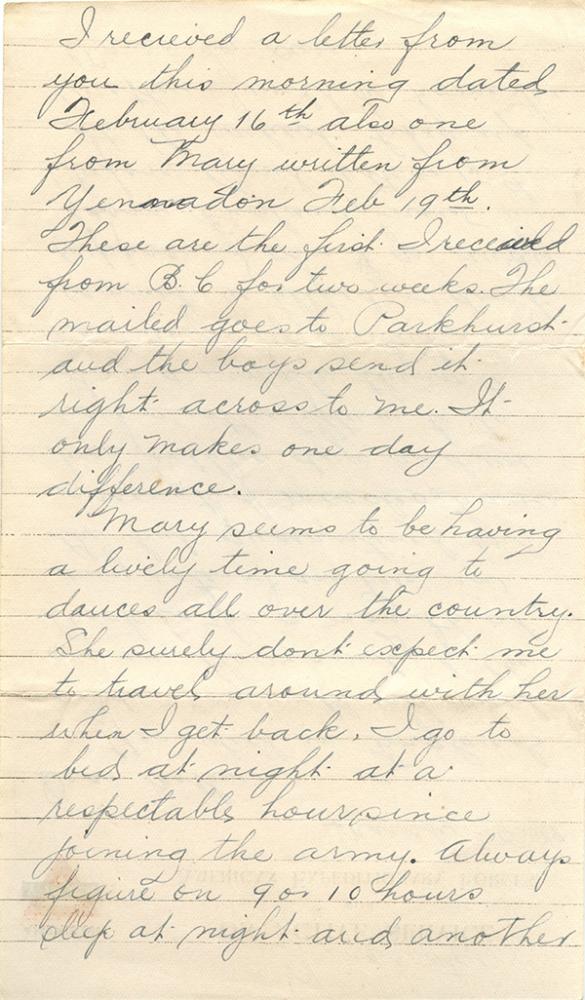 I recieved a letter from
you this morning dated
February 16th also one
from Mary written from
Yennadon Feb 19th.
These are the first I received
from B. C for two weeks. The
mailed goes to Parkhurst
and the boys send it
right across to me. It
only makes one day
difference.
Mary seems to be having
a lively time going to
dances all over the country.
She surely dont expect me
to travel around with her
when I get back. I go to
bed at night at a
respectable hour since
joining the army. Always
figure on 9 or 10 hours
sleep at night and another